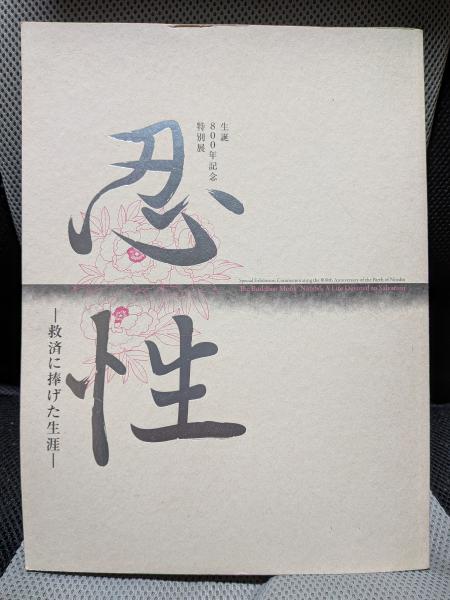 生誕
800年記念
特別展
忍性
Special Exhibition Commemorating the 800th Anniversary of the Birth of Ninshō
The Buddhist Monk Ninshō: A Life Devoted to Salvation
—救済に捧げた生涯—